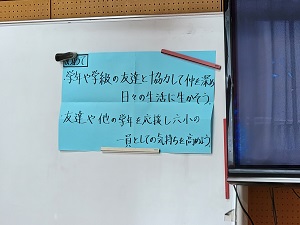 めあて
学年や学級の友達と協力して仲を深め
日々の生活に生かそう
友達や他の学年を応援し六小の
一員としての気持ちを高めよう